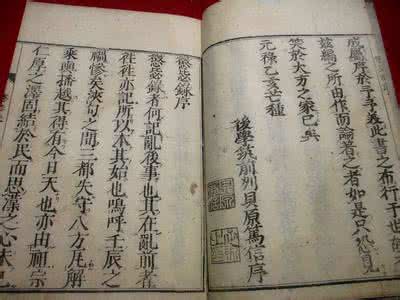 屬序於予予義此書之布行于世
茲編之所由作而論著之者如是只恐見
笑於大方之家已矣
元祿乙亥芒種
後學筑前州貝原篤信序
懲毖錄序
懲毖錄者何記亂後事也其在亂前者
往往亦記所以本其始也嗚呼壬辰之
禍慘矣浹旬之間三都失守八方瓦解
乘輿播越其得有今日天也亦由祖宗
仁厚之澤固結於民而思漢之心未已